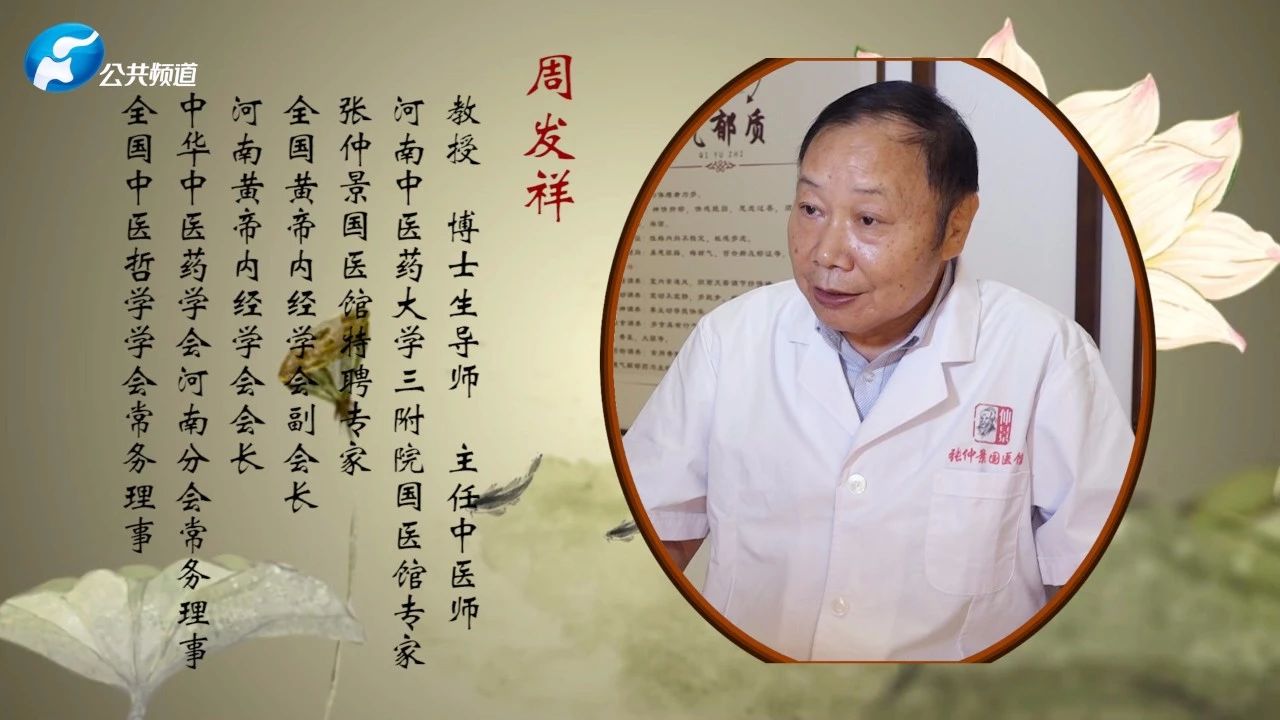 公共频道
周发祥
教授 博士生导师 主任中医师
河南中医药大学三附院国医馆专家
张仲景国医馆特聘专家
全国黄帝内经学会副会长
河南黄帝内经学会会长
中华中医药学会河南分会常务理事
全国中医哲学学会常务理事
郁质
QI YU ZHI
仲景
张仲景国医馆